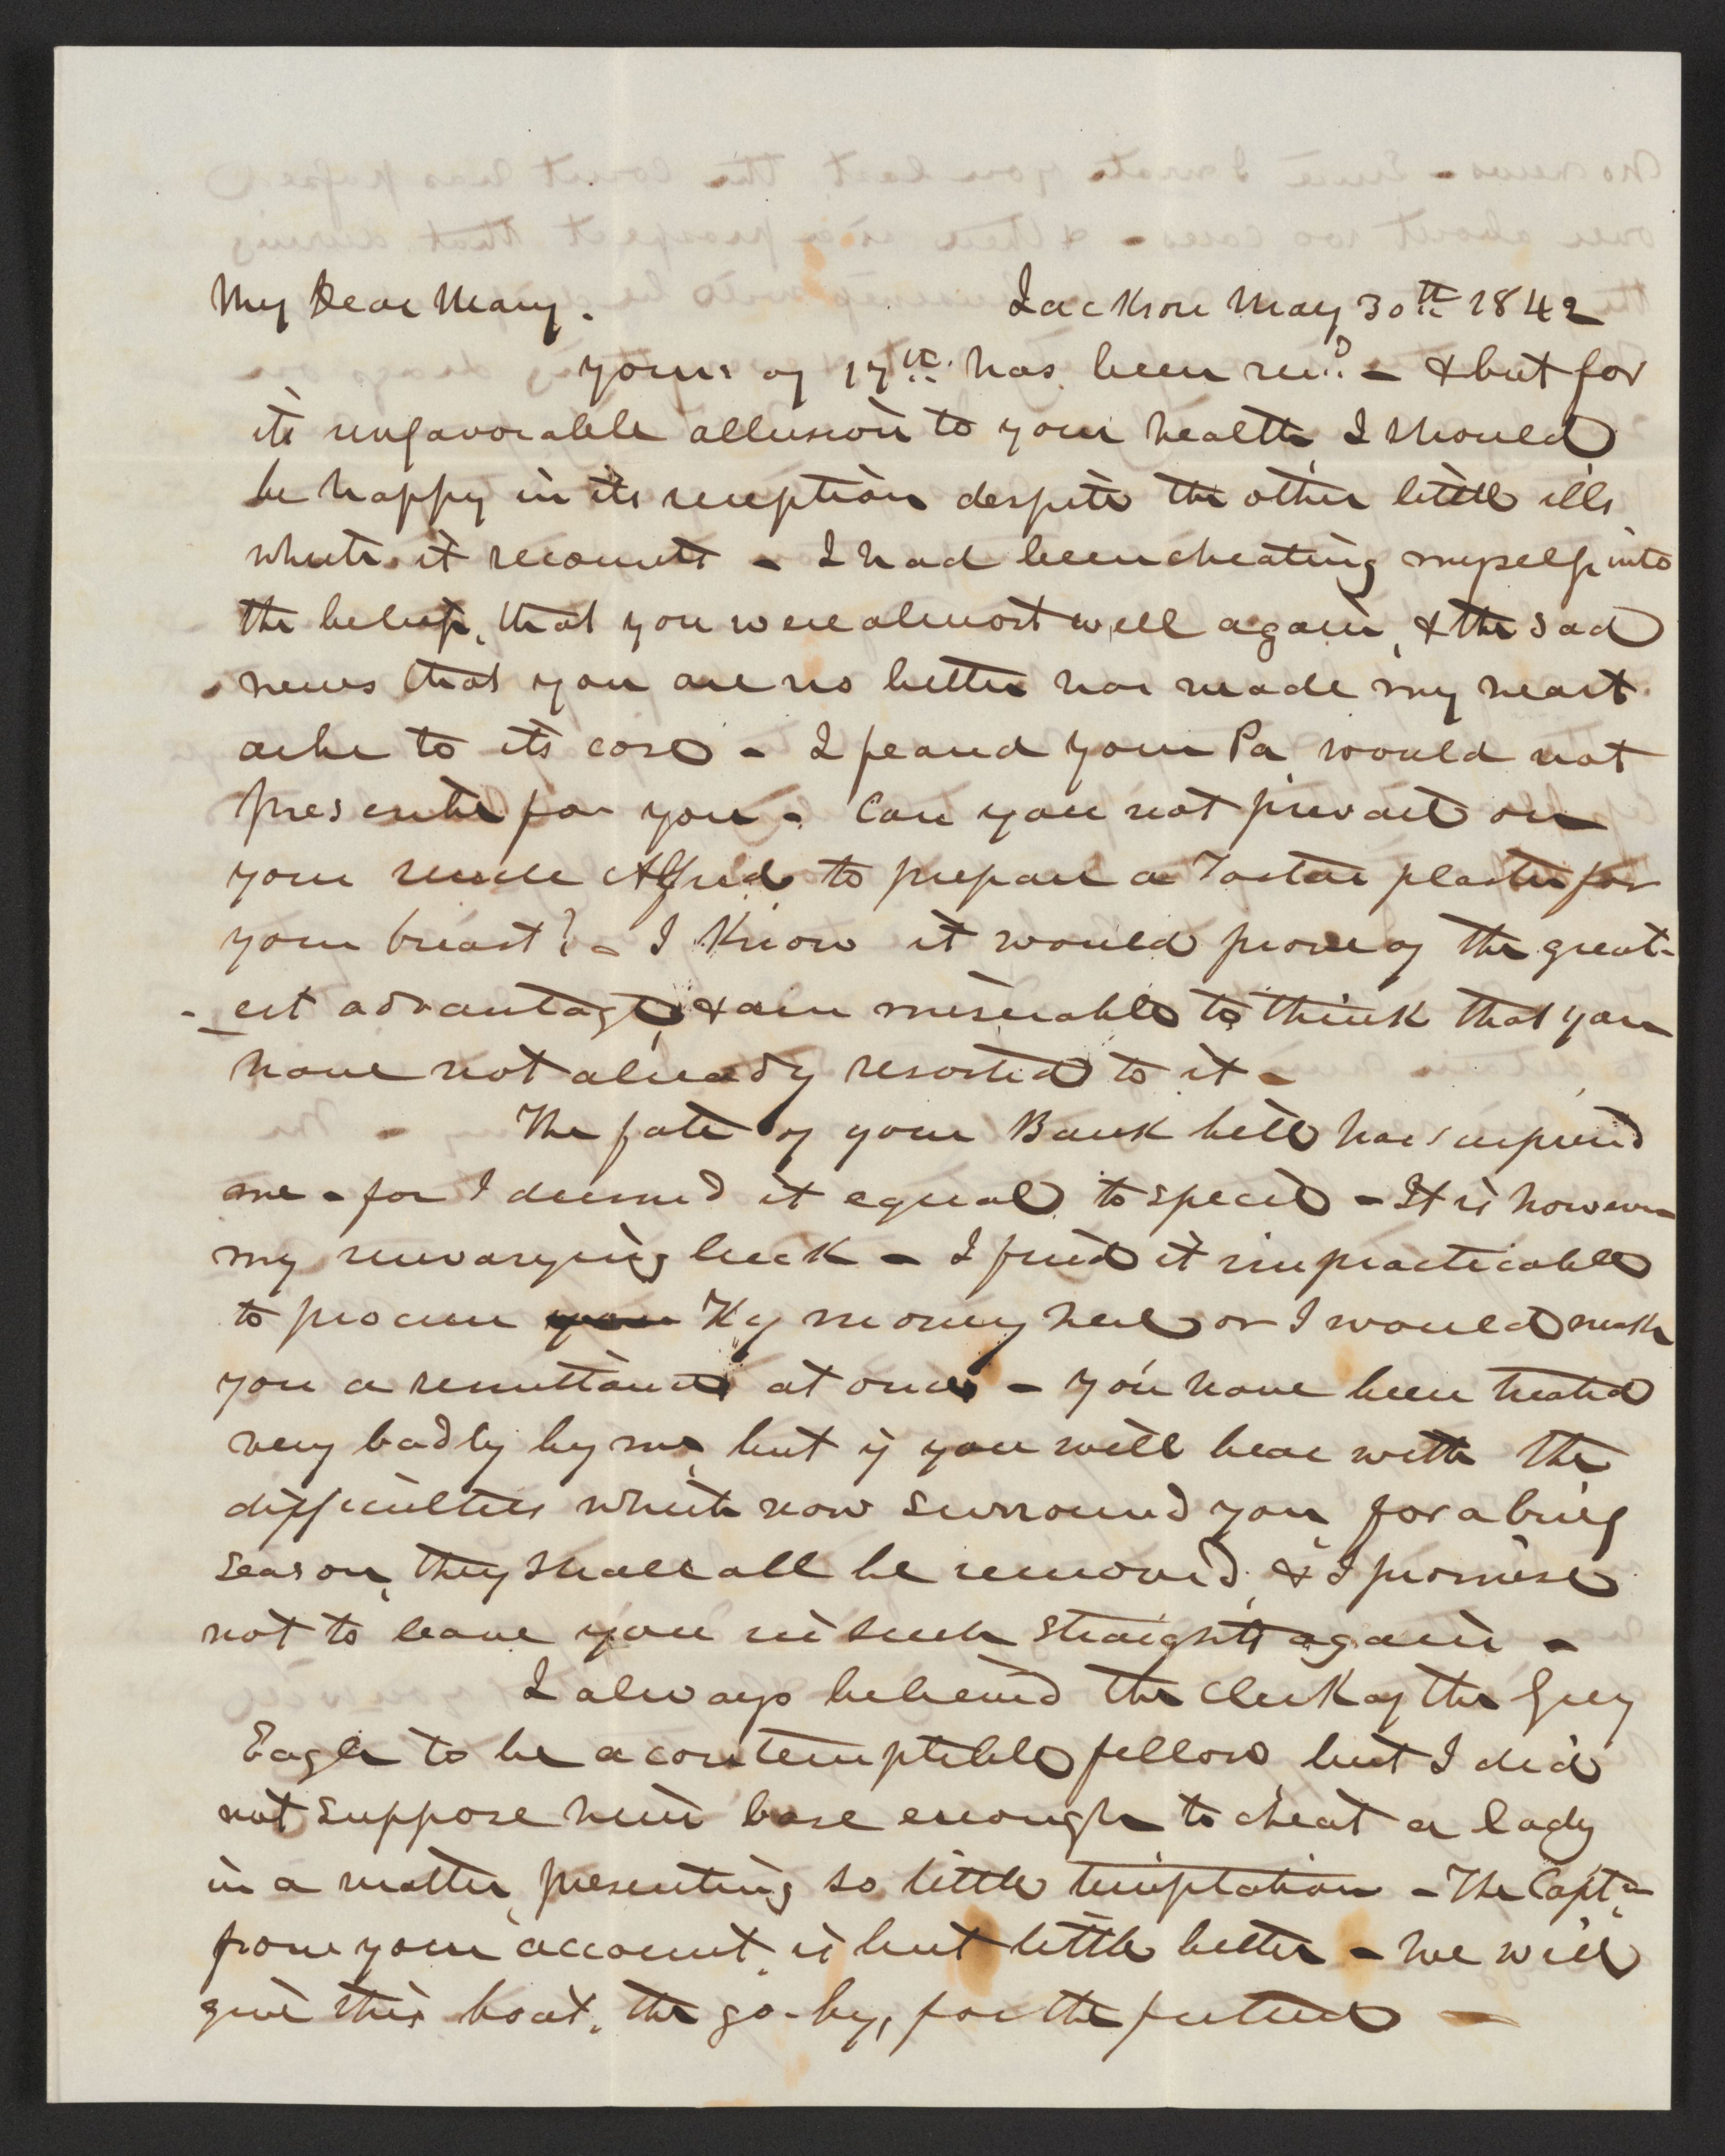 My Dear Mary. Jackson May 30th 1842
yours of 17th has been recd. - & but for
its unfavorable allusion to your health, I should
be happy in its reception despite the other little ills
which it recounts - I had been cheating myself into
the belief, that you were almost well again, & the sad
news that you are no better has made my heart
ache to its core - I feared your Pa would not
prescribe for you - Can you not prevail on
your uncle Alfred to prepare a Tartar plaster for
your breast? - I know it would prove of the great-
-est advantage, & am miserable to think that you
have not already resorted to it -
The fate of your Bank bill has surprised
me - for I deemed it equal to specie - It is however
my unvarying luck - I find it impracticable
to procure Ky money here or I would make
you a remittance at once - you have been treated
very badly by me, but if you will bear with the
difficulties which now surround you, for a brief
season, they shall all be removed, & I promise
not to leave you in such straights again -
I always believed the clerk of the Grey
Eagle to be a contemptible fellow, but I did
not suppose him base enough to cheat a lady
in a matter, presenting so little temptation - The Captn.
from your account, is but little better - We will
give this boat, the go-by, for the future -